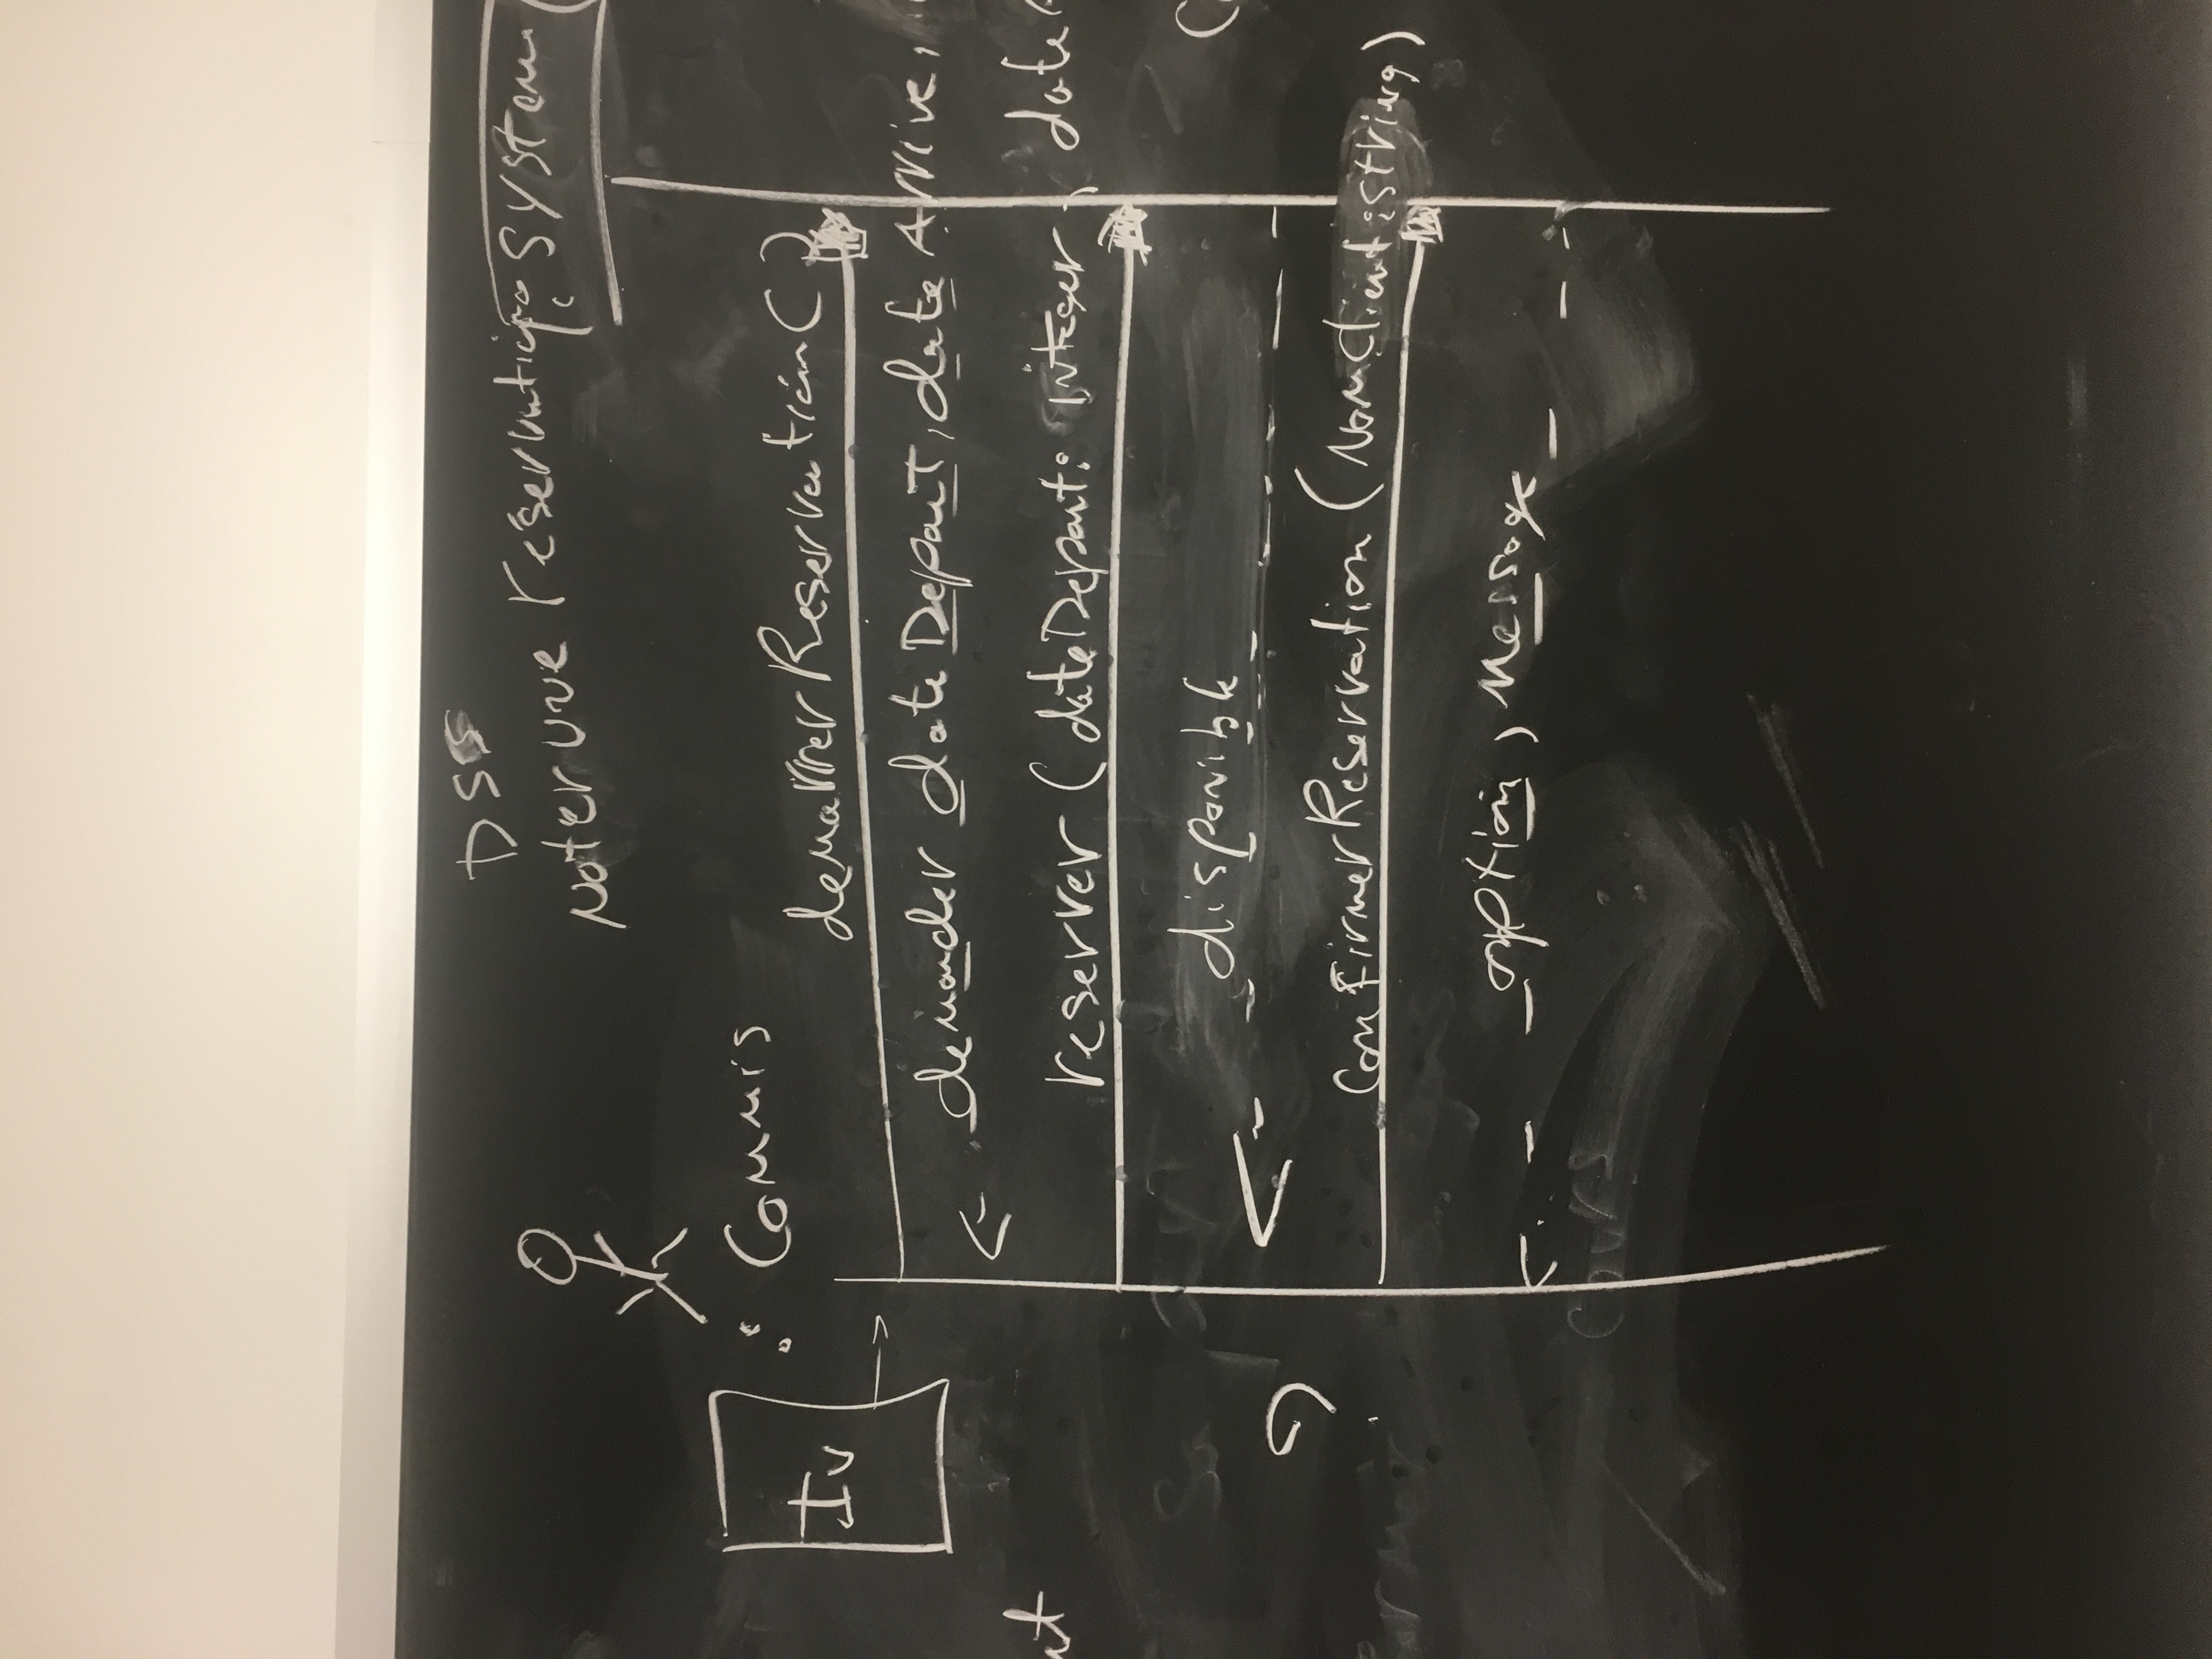 DSS
Noter une réservation
: System
: Commis
IV
demarrerReservation( )
demander dateDepart, dateArrive,
reserver (dateDepart: integer, date
disponible
?
confirmerReservation (NomClient: string)
option, Message
cours